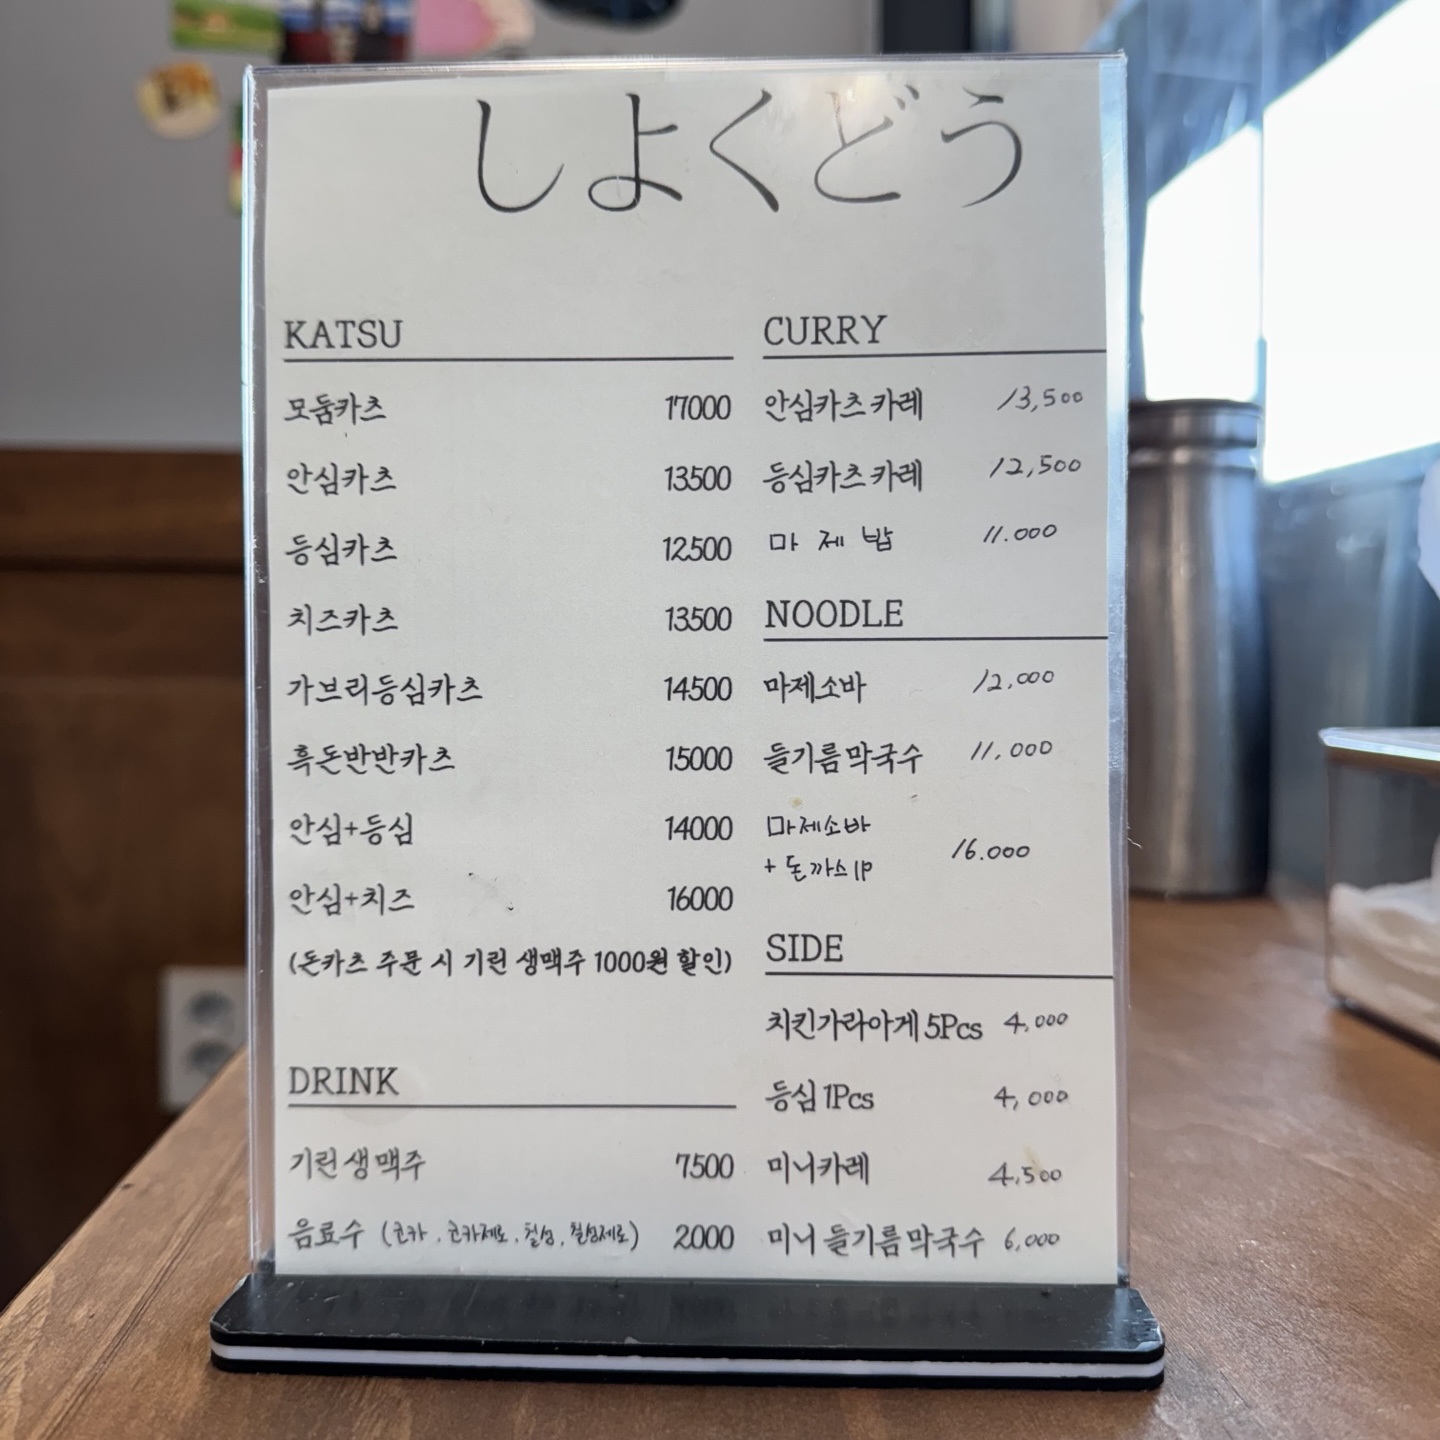 しよくどう
KATSU
모둠카츠 17000
안심카츠 13500
등심카츠 12500
치즈카츠 13500
가브리등심카츠 14500
흑돈반반카츠 15000
안심+등심 14000
안심+치즈 16000
(돈카츠 주문 시 기린 생맥주 1000원 할인)
DRINK
기린생맥주 7500
음료수 (코카, 코카제로, 칠성, 칠성제로) 2000
CURRY
안심카츠카레 13,500
등심카츠카레 12,500
마제밥 11.000
NOODLE
마제소바 12,000
들기름막국수 11,000
마제소바
+ 돈까스 1P 16.000
SIDE
치킨가라아게 5Pcs 4,000
등심 1Pcs 4,000
미니카레 4,500
미니 들기름막국수 6,000